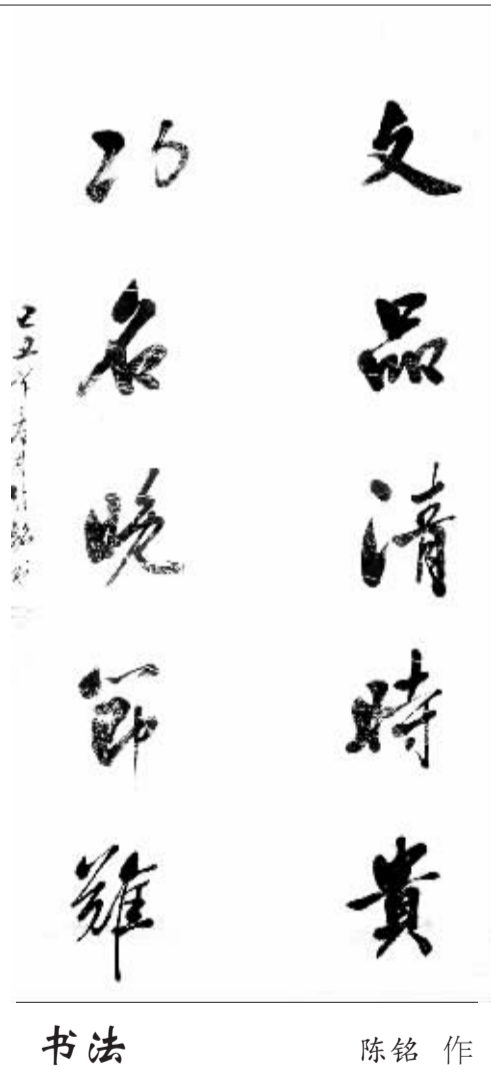 文品清時貴
功名晚節難
己丑年
书法 陈铭 作